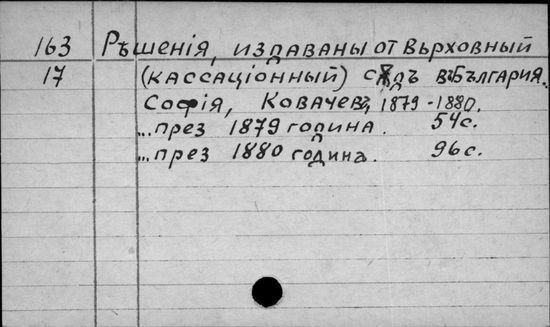 163 Рѣшенія, издаваны от Вьрховный
17 (кассаціонный) сѫдъ въ България.
София, Ковачевъ, 1879-1880.
„.през 1879 година. 54с.
„.през 1880 година. 96с.